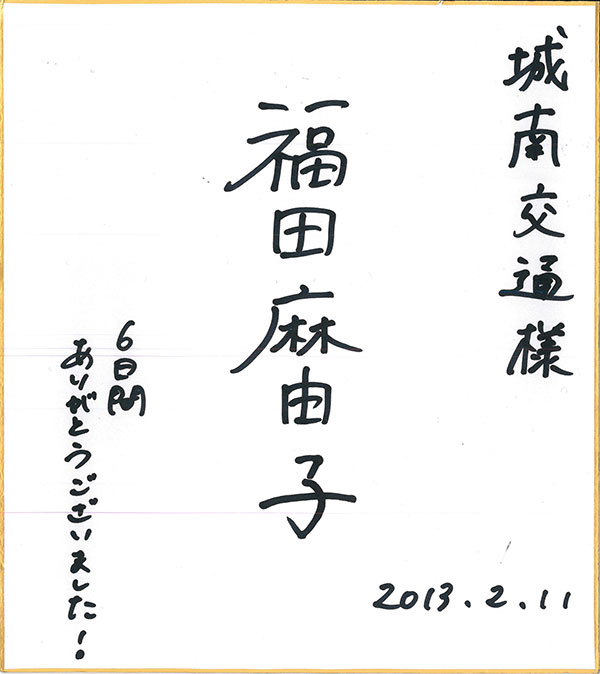 城南交通様
福田麻由子
6日間
ありがとうございました!
2013.2.11